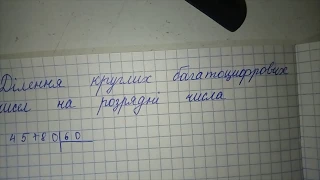 Ділення круглих багатоцифрових
чисел на розрядні числа
45780|60